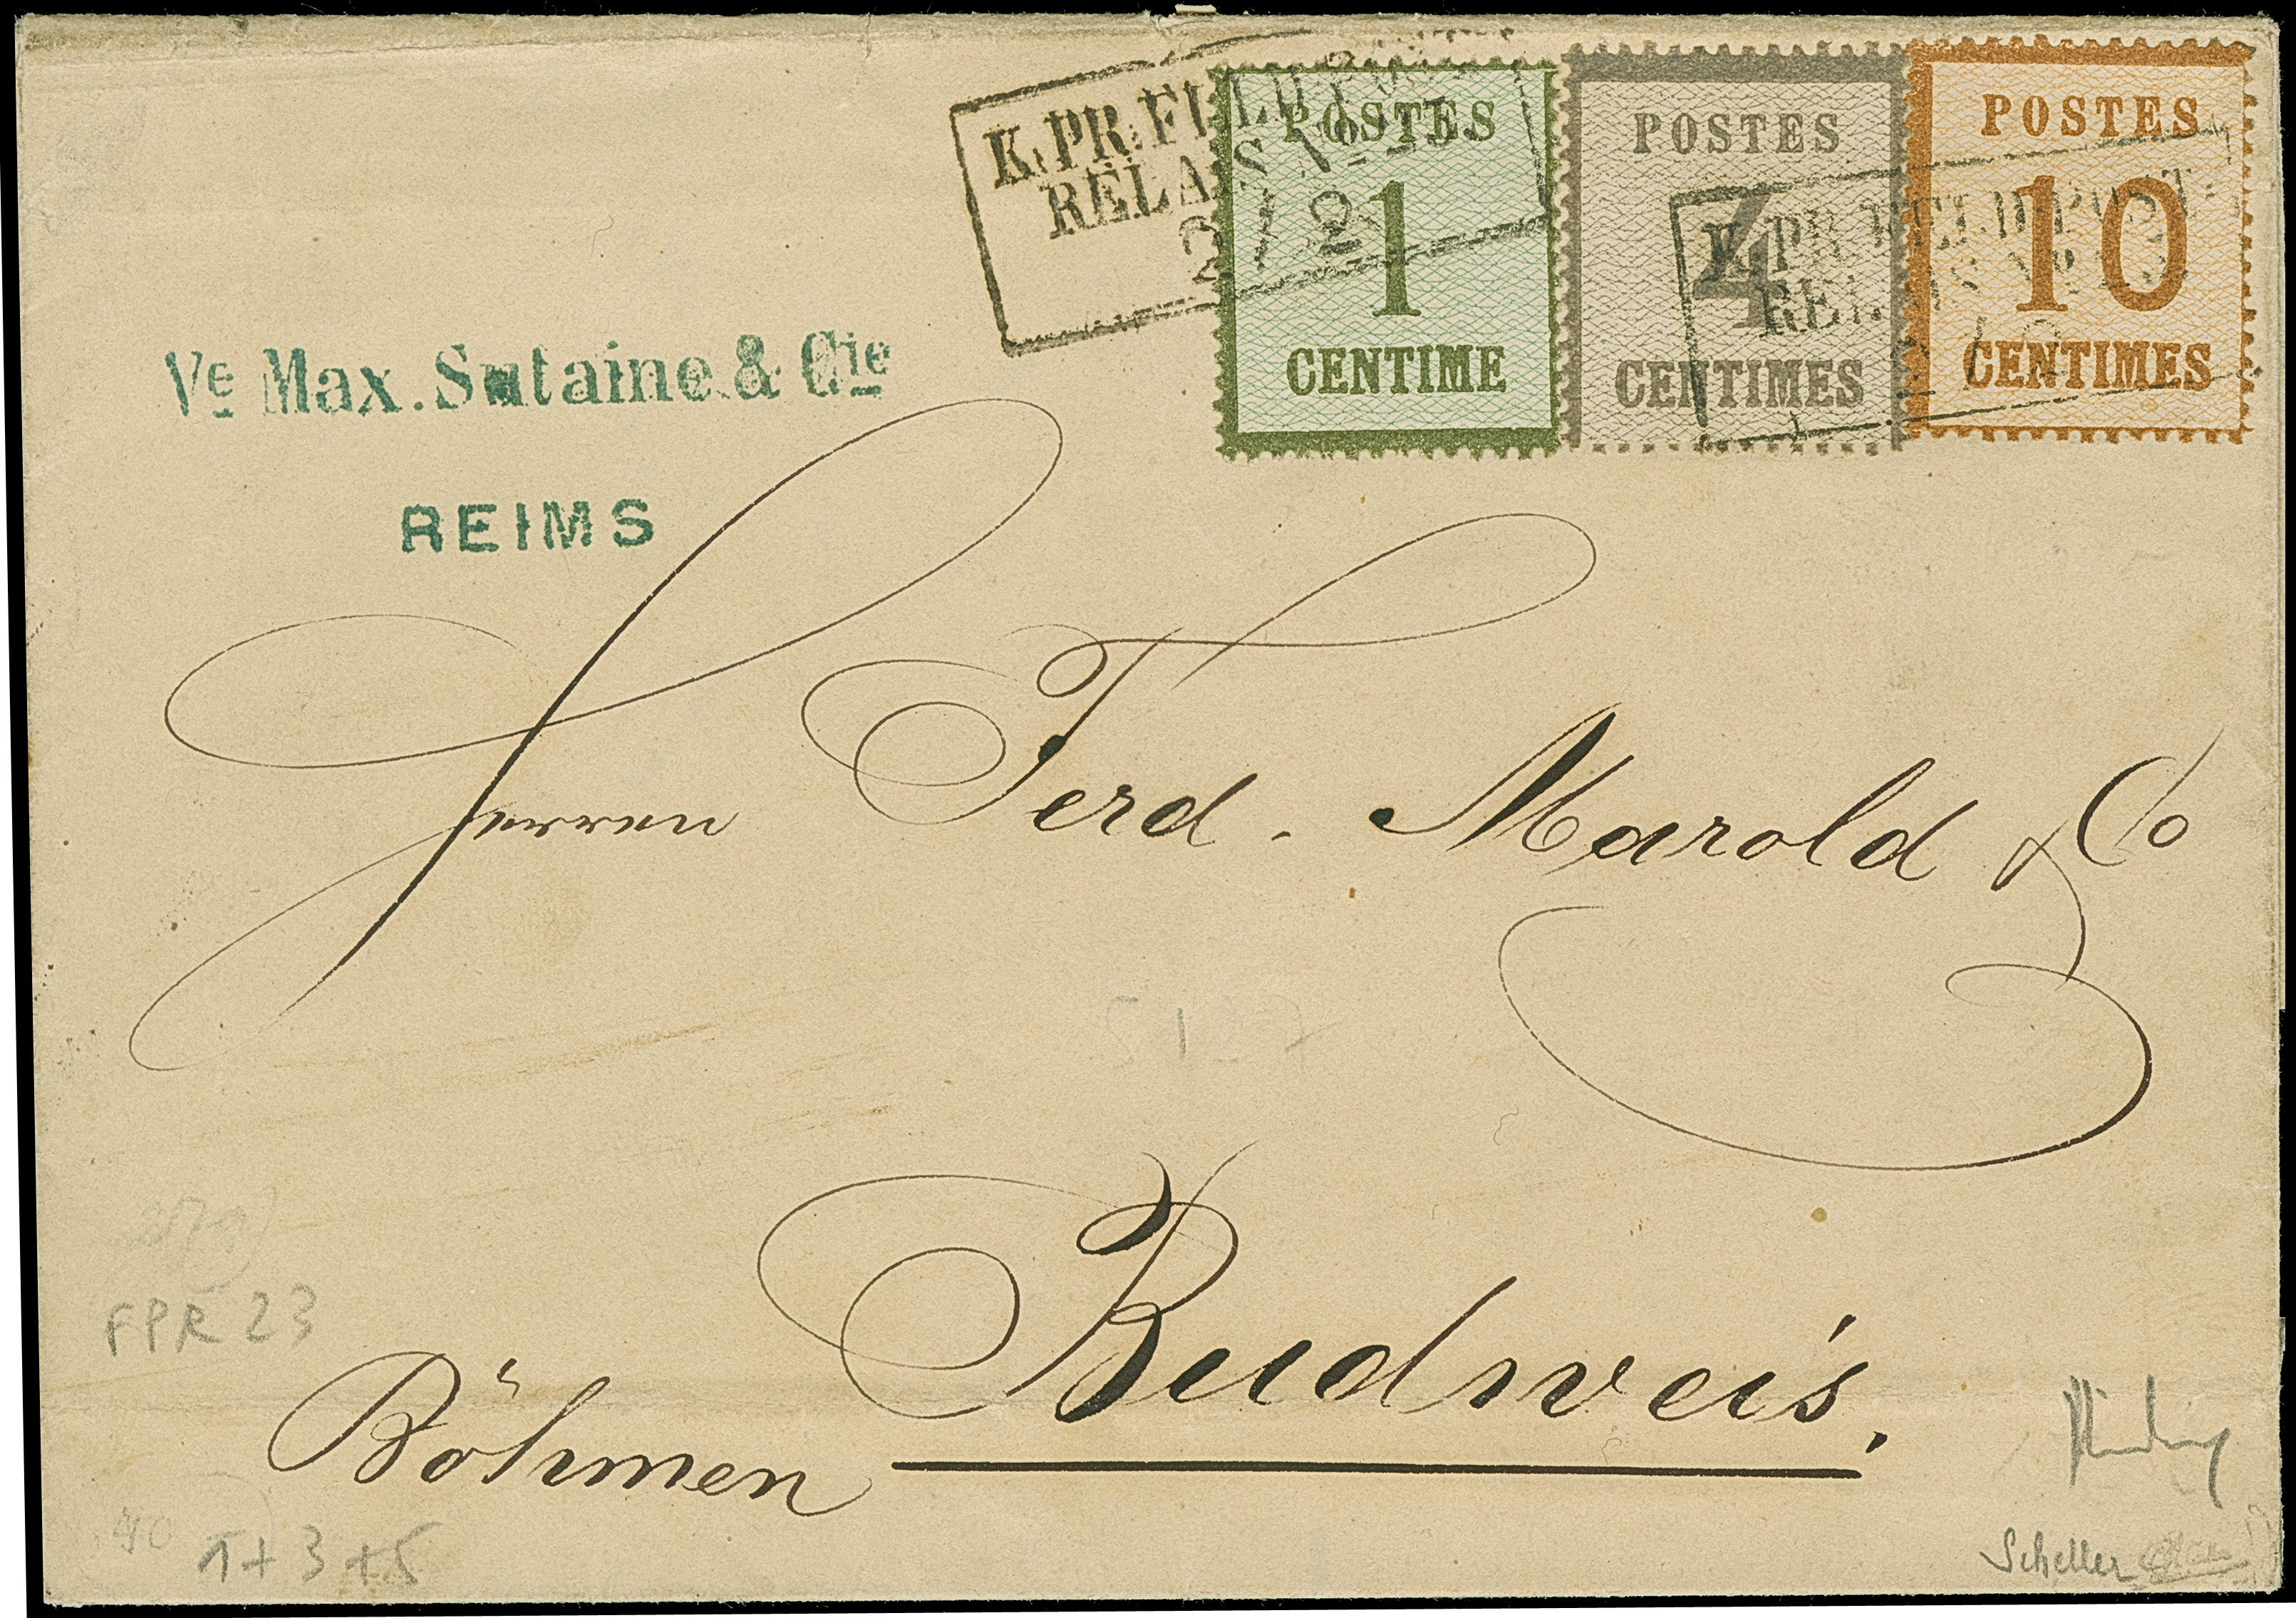 K. PR. FELDPOST
RELAIS No
2/2
POSTES
1
CENTIME
POSTES
4
CENTIMES
POSTES
10
CENTIMES
K. PR. FELDPOST
RELAIS No
Ve Max. Sutaine & Cie
REIMS
Herren Ferd. Marold & Co
5127
Budweis.
FPR 23
Böhmen
1+3+5
Scheller